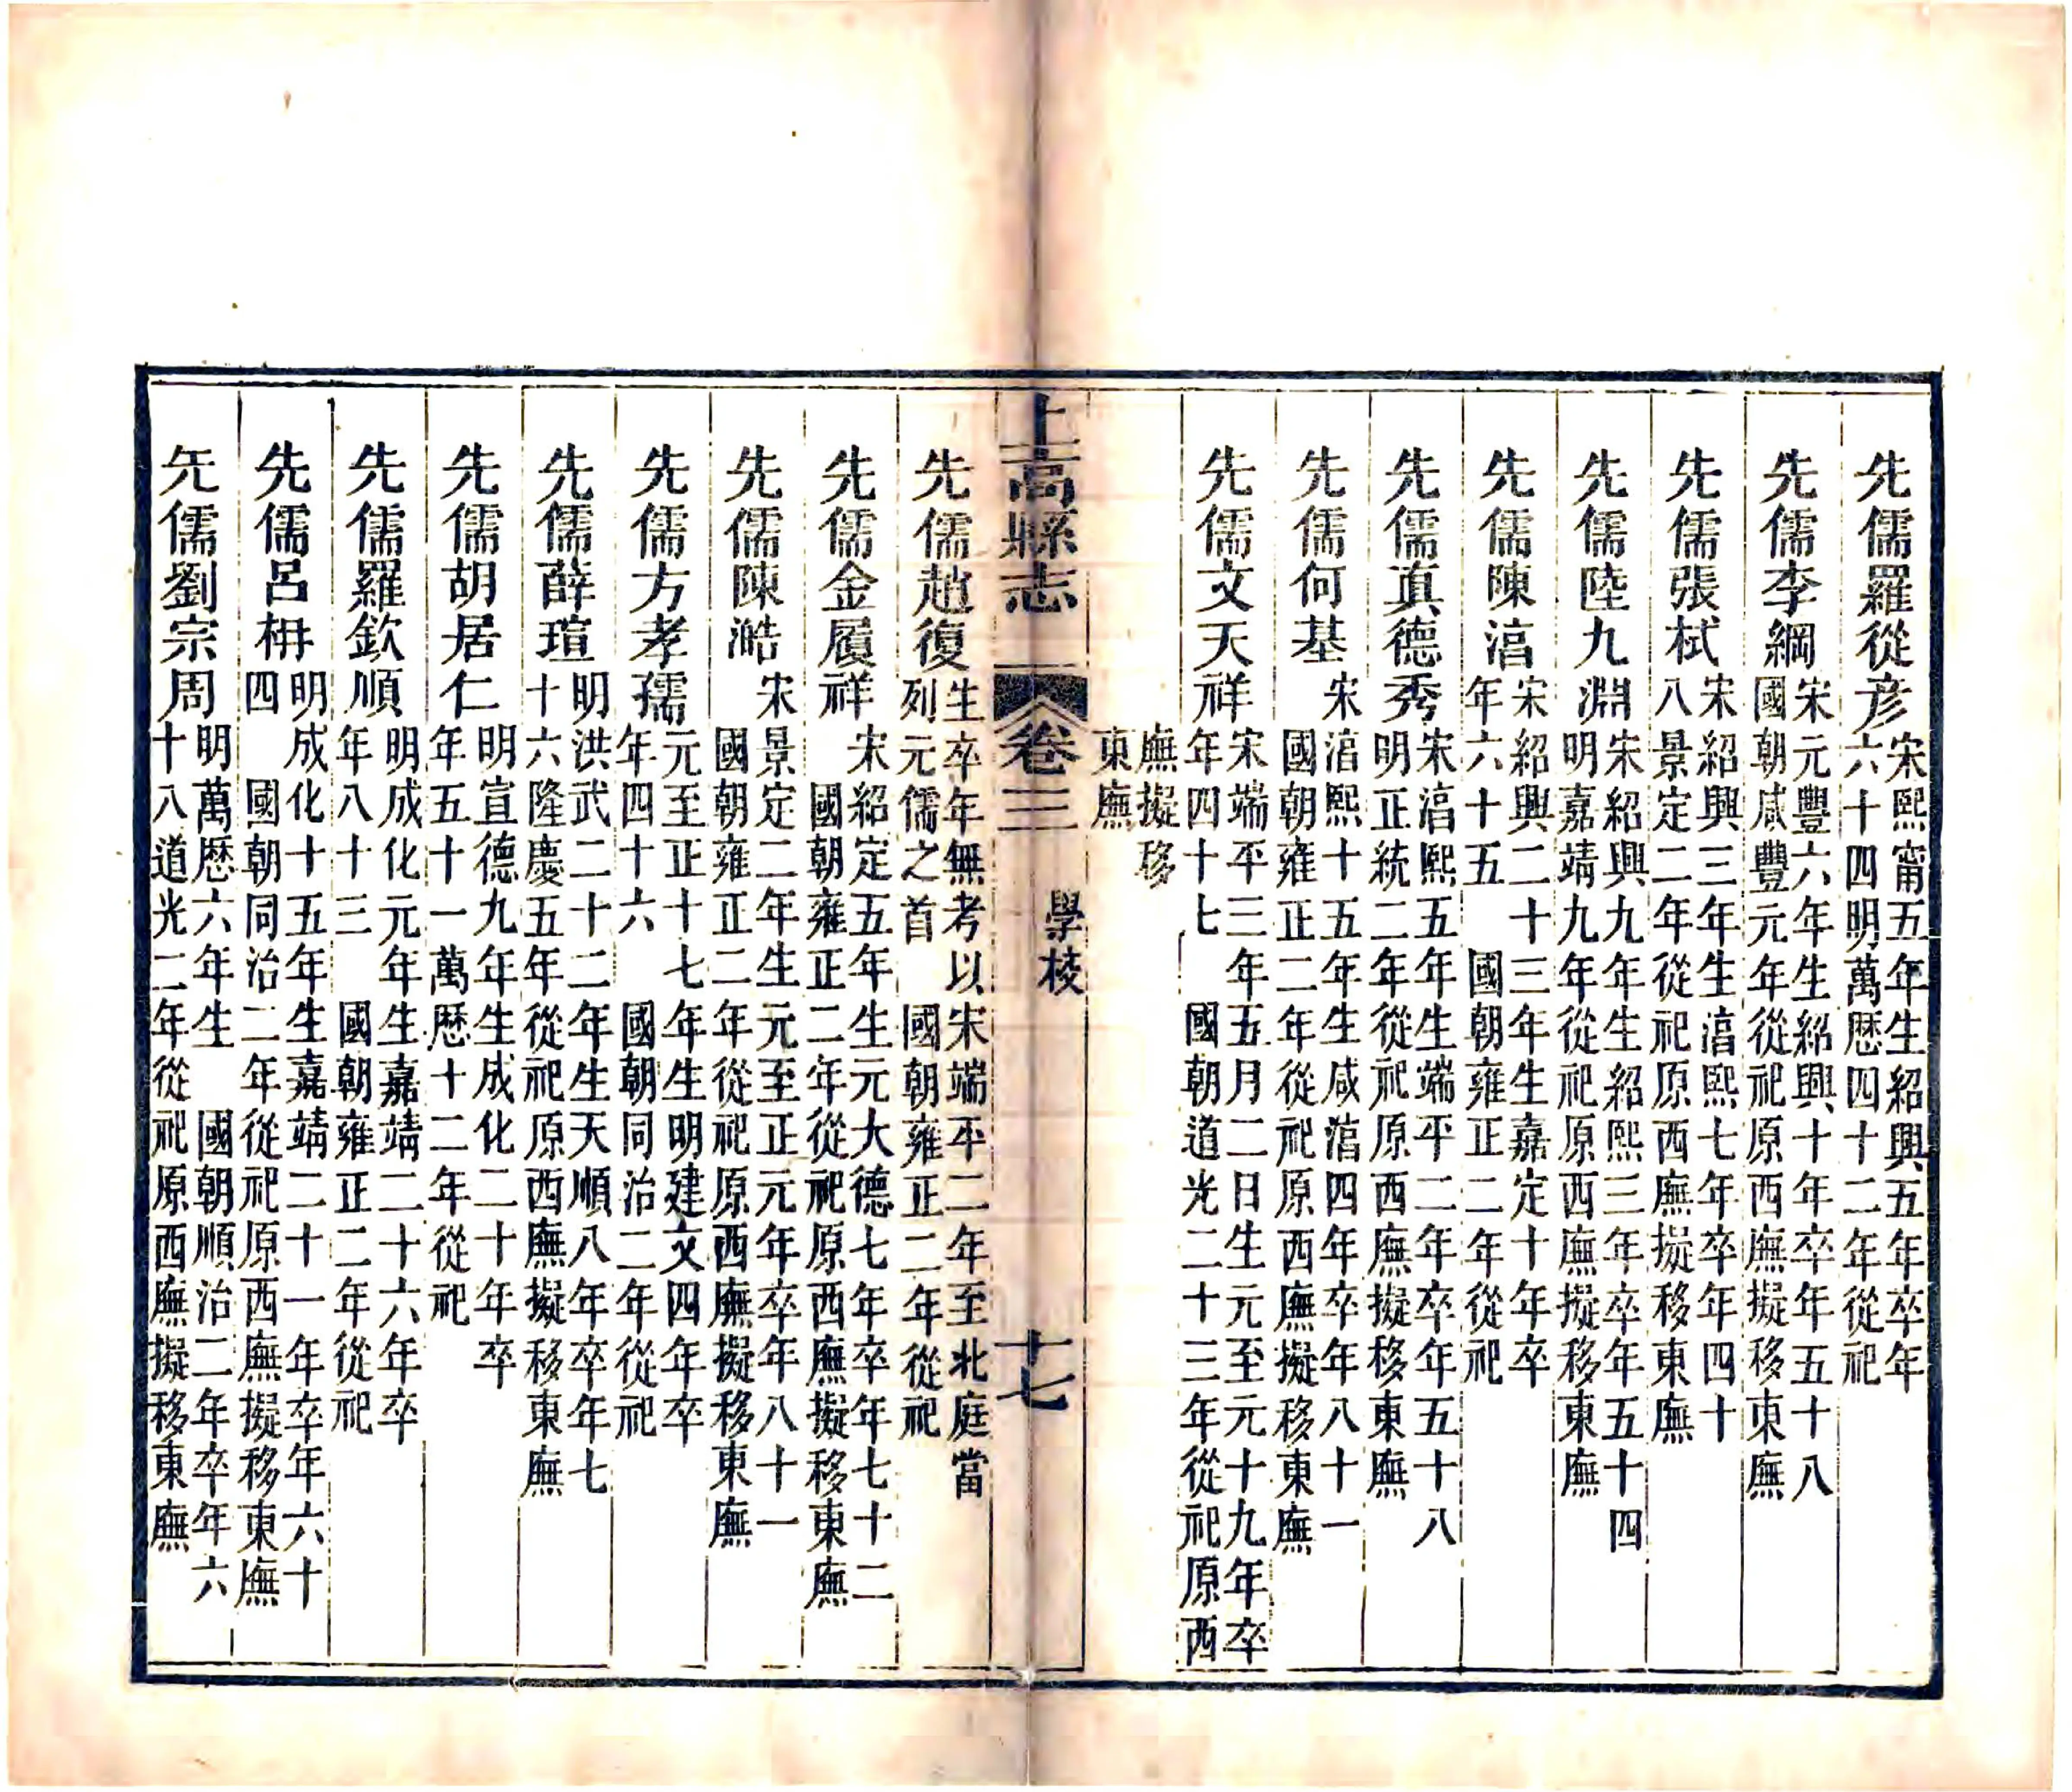 先儒羅從彥宋熙甯五年生紹興五年卒年六十四明萬歷四十二年從祀
先儒李綱宋元豐六年生紹興十年卒年五十八國朝咸豐元年從祀原西廡擬移東廡
先儒張栻宋紹興三年生湻熙七年卒年四十八景定二年從祀原西廡擬移東廡
先儒陸九淵宋紹興九年生紹熙三年卒年五十四明嘉靖九年從祀原西廡擬移東廡
先儒陳湻宋紹興二十三年生嘉定十年卒年六十五 國朝雍正二年從祀
先儒真德秀宋湻熙五年生端平二年卒年五十八明正統二年從祀原西廡擬移東廡
先儒何基宋湻熙十五年生咸湻四年卒年八十一國朝雍正二年從祀原西廡擬移東廡
先儒文天祥宋端平三年五月二日生元至元十九年卒年四十七 國朝道光二十三年從祀原西
廡擬移東廡
上高縣志 卷三 學校 十七
先儒趙復生卒年無考以宋端平二年至北庭當列元儒之首 國朝雍正二年從祀
先儒金履祥宋紹定五年生元大德七年卒年七十二國朝雍正二年從祀原西廡擬移東廡
先儒陳澔宋景定二年生元至正元年卒年八十一國朝雍正二年從祀原西廡擬移東廡
先儒方孝孺元至正十七年生明建文四年卒年四十六 國朝同治二年從祀
先儒薛瑄明洪武二十二年生天順八年卒年七十六隆慶五年從祀原西廡擬移東廡
先儒胡居仁明宣德九年生成化二十年卒年五十一萬歷十二年從祀
先儒羅欽順明成化元年生嘉靖二十六年卒年八十三 國朝雍正二年從祀
先儒呂柟明成化十五年生嘉靖二十一年卒年六十四 國朝同治二年從祀原西廡擬移東廡
先儒劉宗周明萬歷六年生 國朝順治二年卒年六十八道光二年從祀原西廡擬移東廡